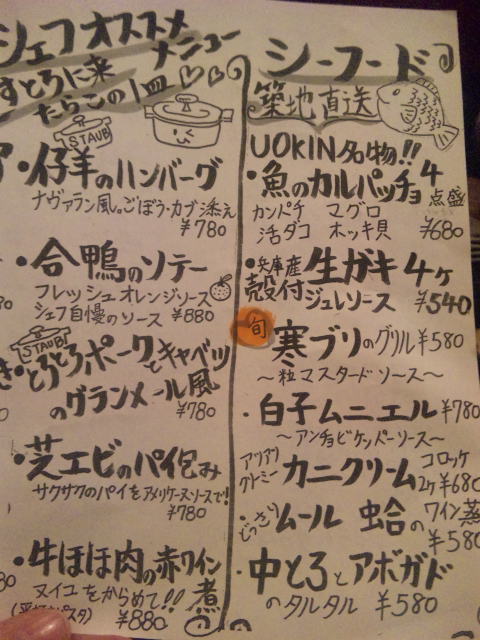 シェフオススメ
メニュー
すとろに来
たらこの1皿♡♡
STAUB
・仔羊のハンバーグ
ナヴァラン風。ごぼう・カブ添え
¥780
・合鴨のソテー
フレッシュオレンジソース
シェフ自慢のソース ¥880
STAUB
とろとろポークとキャベツ
のグランメール風
¥780
・芝エビのパイ包み
サクサクのパイをアメリケーヌソースで!
¥780
・牛ほほ肉の赤ワイン煮
ヌイユをからめて!!
¥880
シーフード
築地直送
UOKIN名物!!
・魚のカルパッチョ4点盛
カンパチ マグロ
活ダコ ホッキ貝 ¥680
・兵庫産殻付生ガキ4ヶ
ジュレソース ¥540
旬 寒ブリのグリル ¥580
〜粒マスタードソース〜
・白子ムニエル ¥780
〜アンチョビケッパーソース〜
アツアツクリーミー カニクリームコロッケ
2ヶ ¥680
・どっさりムール蛤のワイン蒸
¥580
・中とろとアボガド
のタルタル ¥580